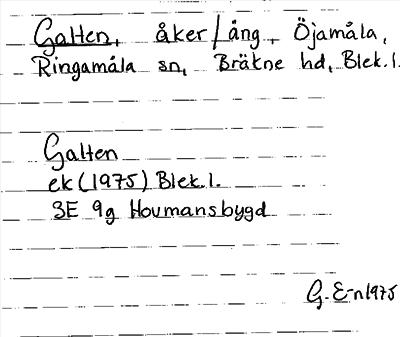 Galten, åker/äng, Öjamåla,
Ringamåla sn, Bräkne hd, Blek.l.
Galten
ek (1975) Blek.l.
3E 9g Hovmansbygd
G. E-n 1975